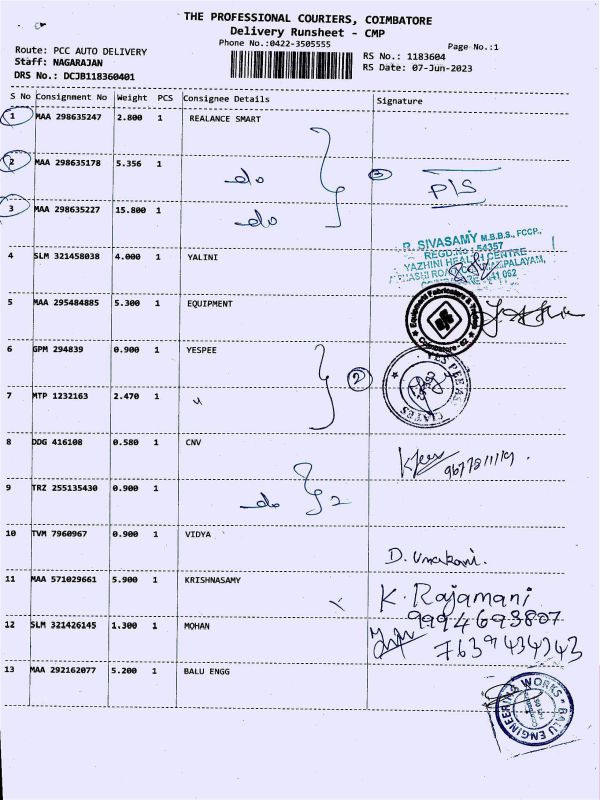 THE PROFESSIONAL COURIERS, COIMBATORE
Delivery Runsheet - CMP
Phone No.:0422-3505555
Page No.:1
Route: PCC AUTO DELIVERY
RS No.: 1183604
Staff: NAGARAJAN
RS Date: 07-Jun-2023
DRS No.: DCJB118360401
S No Consignment No Weight PCS Consignee Details Signature
1 MAA 298635247 2.800 1 REALANCE SMART
2 MAA 298635178 5.356 1 do
3 P/S
3 MAA 298635227 15.800 1 do
R. SIVASAMY M.B.B.S., FCCP.,
REGD.No : 54357
YAZHINI HEALTH CENTRE
4 SLM 321458038 4.000 1 YALINI
5 MAA 295484885 5.300 1 EQUIPMENT
Equipment Fabricators & Traders
Coimbatore - 62
6 GPM 294839 0.900 1 YESPEE
2
YES PEE ASSOCIATES
7 MTP 1232163 2.470 1 "
8 DDG 416108 0.580 1 CNV
9 TRZ 255135430 0.900 1 do 2
10 TVM 7960967 0.900 1 VIDYA
D. Umarani.
11 MAA 571029661 5.900 1 KRISHNASAMY
K. Rajamani
9994693807
12 SLM 321426145 1.300 1 MOHAN
7639434343
13 MAA 292162077 5.200 1 BALU ENGG
BALU ENGINEERING WORKS